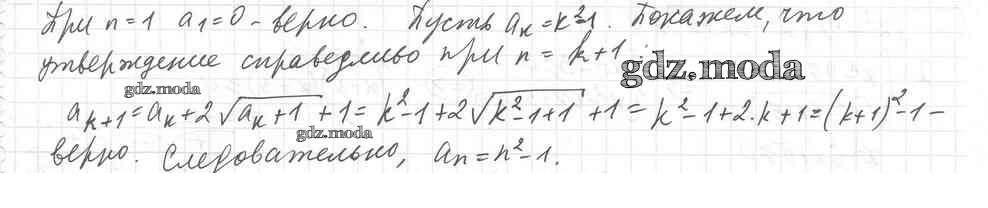 При n = 1 a₁ = 0 - верно. Пусть aₖ = k²-1. Покажем, что
утверждение справедливо при n = k+1:
gdz.moda
gdz.moda
aₖ₊₁ = aₖ + 2√(aₖ+1) + 1 = k²-1+2√(k²-1+1) + 1 = k²-1+2·k+1 = (k+1)²-1 -
gdz.moda
верно. Следовательно, aₙ = n²-1.